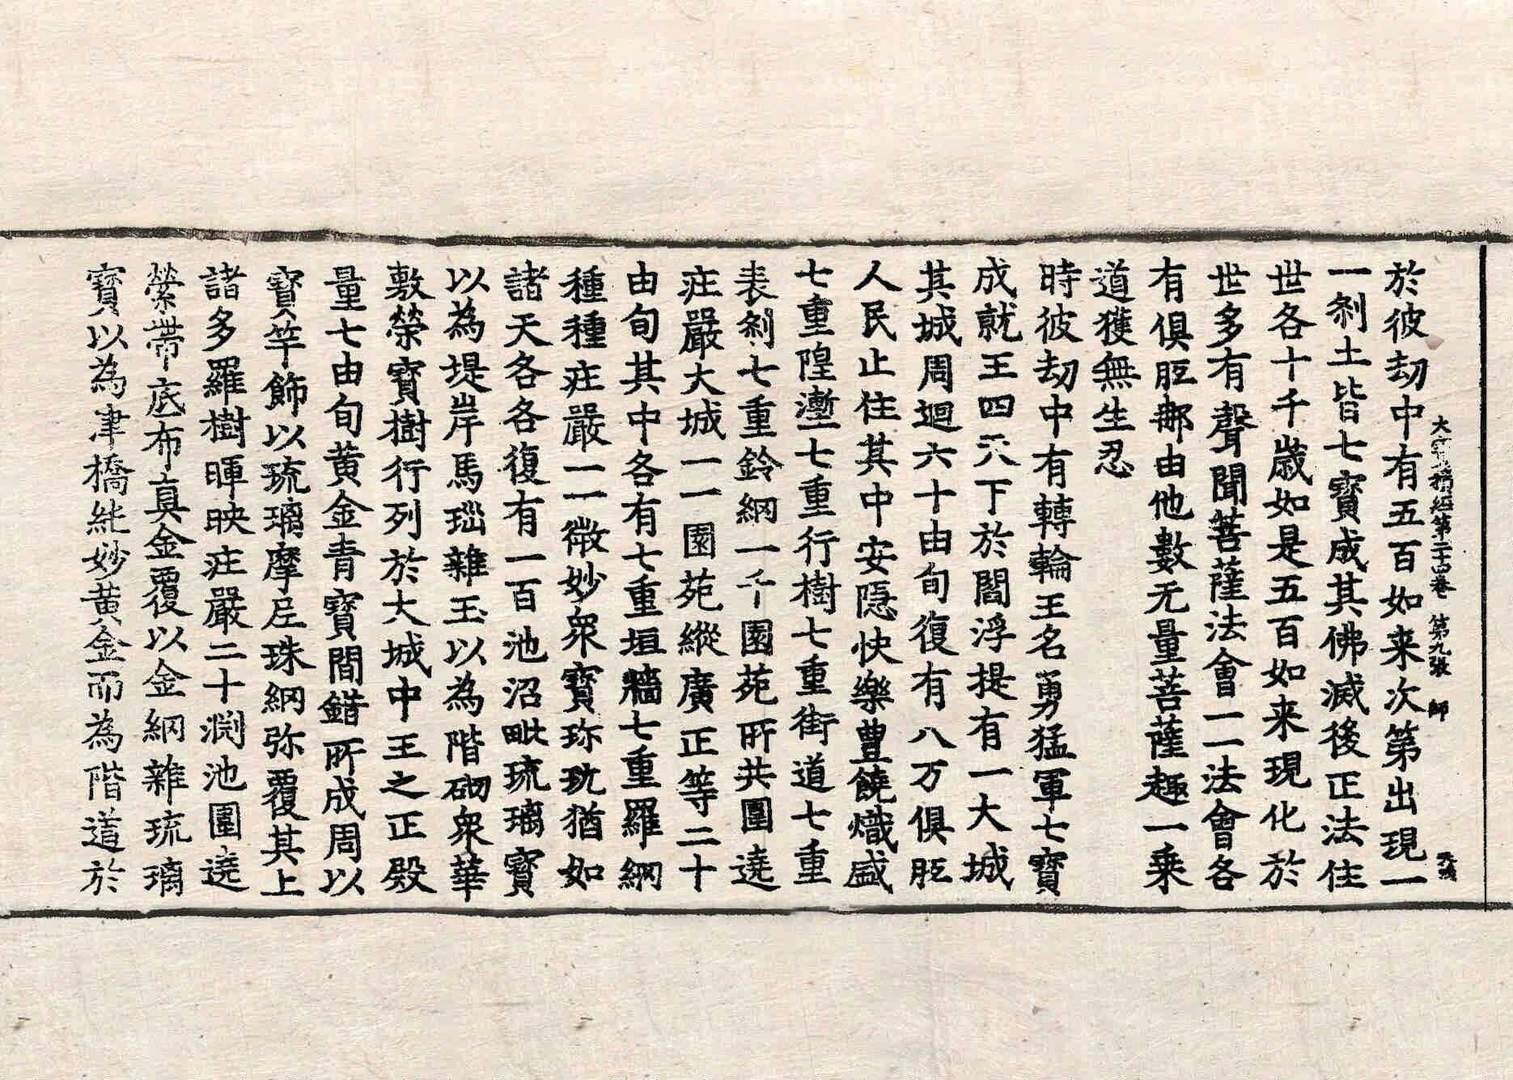 大寶積經第二十四卷　第九張　師
於彼劫中有五百如来次第出現一
一刹土皆七寶成其佛滅後正法住
世各十千歲如是五百如来現化於
世多有聲聞菩薩法會一二法會各
有俱胝那由他數无量菩薩趣一乘
道獲無生忍
時彼劫中有轉輪王名勇猛軍七寶
成就王四天下於閻浮提有一大城
其城周迴六十由旬復有八万俱胝
人民止住其中安隱快樂豊饒熾盛
七重隍壍七重行樹七重街道七重
表刹七重鈴網一千園苑所共圍遶
庄嚴大城一一園苑縱廣正等二十
由旬其中各有七重垣牆七重羅網
種種庄嚴一一微妙衆寶珎玩猶如
諸天各各復有一百池沼毗琉璃寶
以為堤岸馬瑙雜玉以為階砌衆華
敷榮寶樹行列於大城中王之正殿
量七由旬黄金青寶間錯所成周以
寶竿飾以琉璃摩尼珠網弥覆其上
諸多羅樹暉映庄嚴二十渕池圍遶
縈帶底布真金覆以金網雜琉璃
寶以為津橋純妙黄金而為階道於